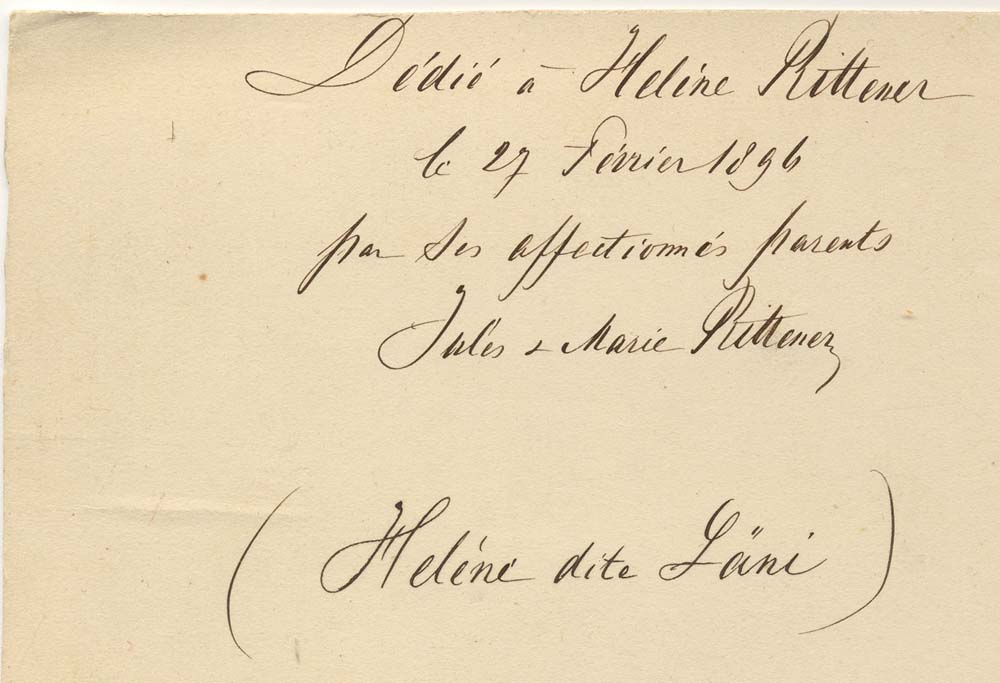 Dédié à Heléne Rittener
le 27 Février 1896
par ses affectionnés parents
Jules & Marie Rittener
(Heléne dite Läni)